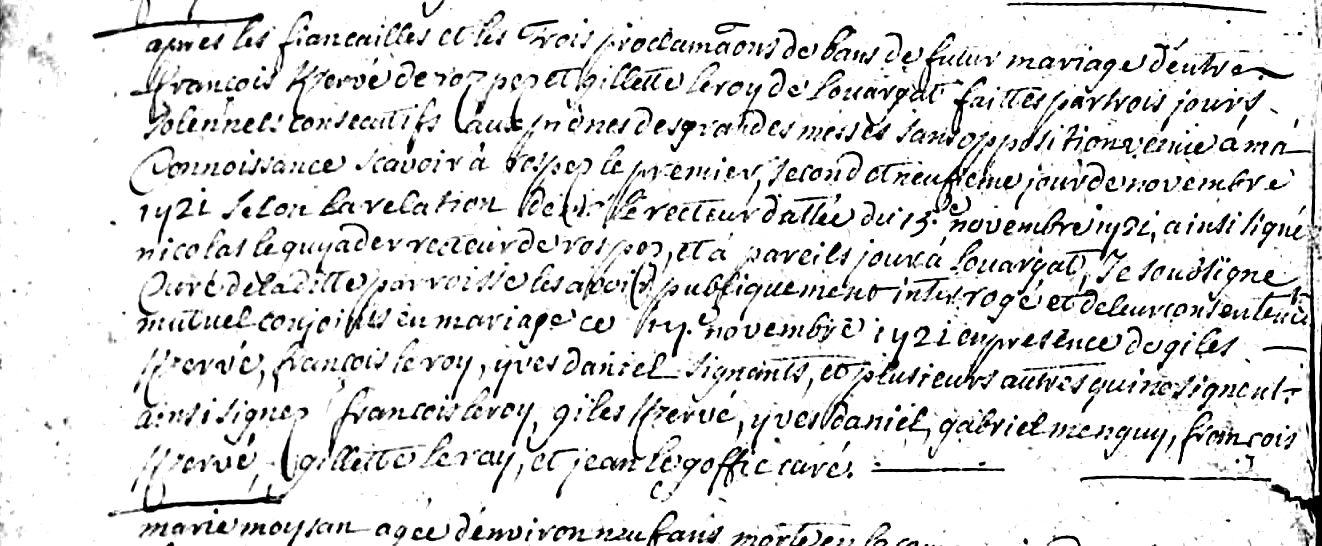 apres les fiancailles et les trois proclamaōns de bans de futur mariage d'entre
françois Kervé de rozpez et gillette le roy de Louargat faittes par trois jours
solennels consecutifs aux prônes des grandes messes sans opposition venüe a ma
Connoissance scavoir à rospez le premier, second et neufieme jour de novembre
1721 selon la relation de Mr le recteur dattée du 15e novembre 1721, ainsi signé
nicolas le guyader recteur de rospez, et à pareils jour à Louargat, Je soussigne
Curé de la ditte parroisse les avoir publiquement interrogé et de leur consentement
mutuel conjoints en mariage ce 17e novembre 1721 en presence de giles
Kervé, françois le roy, yves daniel signants, et plusieurs autres qui ne signent
ainsi signez françois leroy, giles Kervé, yves daniel, gabriel menguy, françois
Kervé, gillette le roy, et jean le goffic curé.
marie moysan agée d'environ neuf ans morte en la